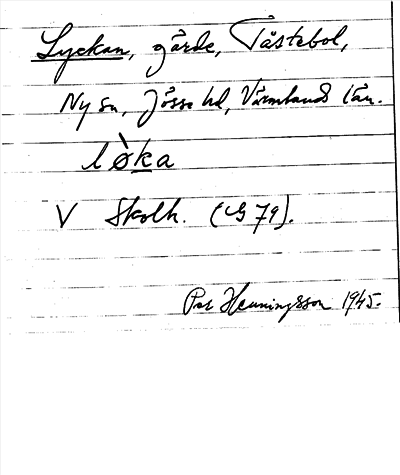 Lyckan, gärde, Tåstebol,
Ny sn, Jösse hd, Värmlands län.
lòka
V Skolh. (G 79).
Per Henningsson 1945.